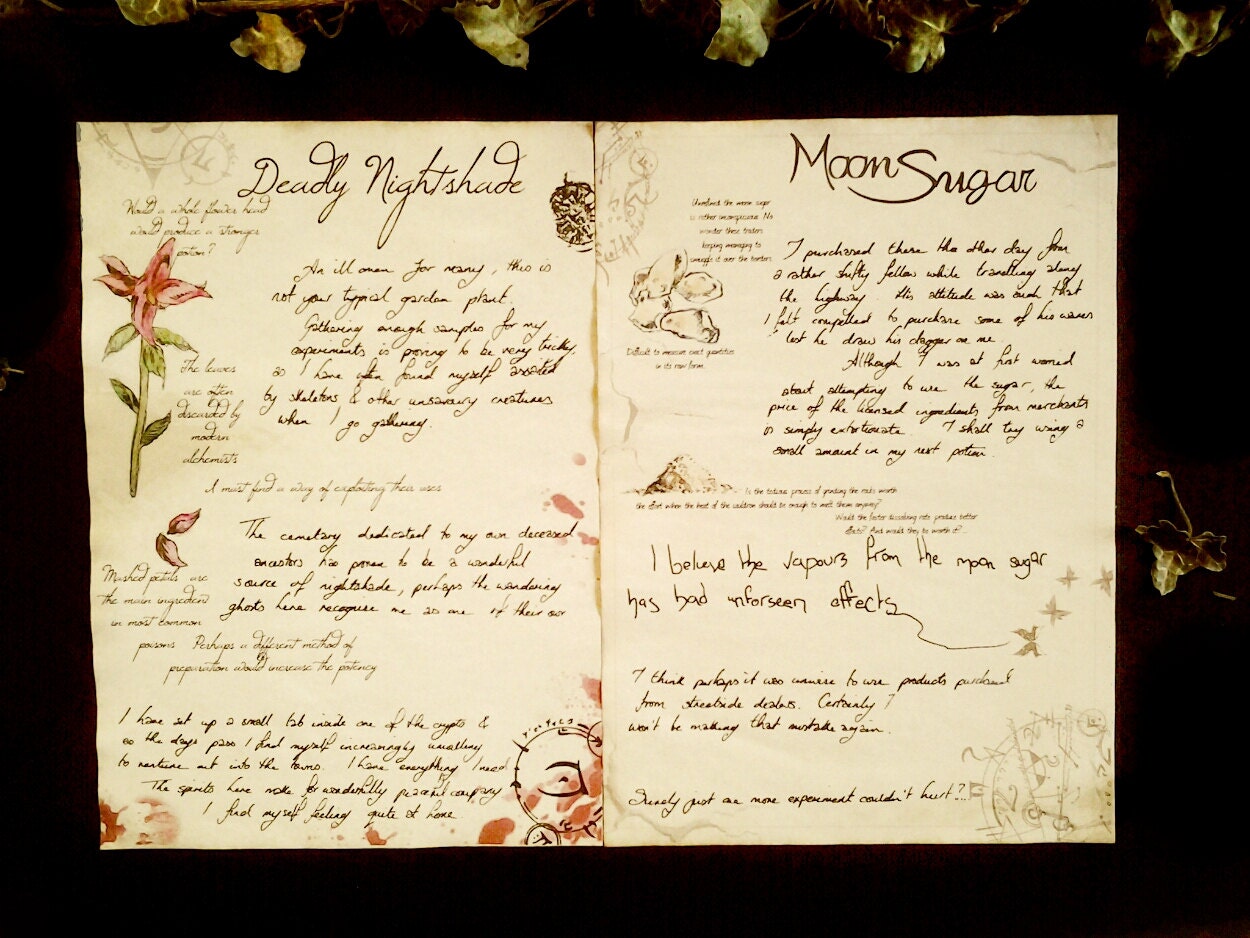 Deadly Nightshade
Would a whole flower head
would produce a stronger
potion?
An ill omen for many, this is
not your typical garden plant.
Gathering enough samples for my
experiments is proving to be very tricky,
as I have often found myself
by skeletons & other unsavoury creatures
when I go gathering.
The leaves
are often
discarded by
modern
alchemists
I must find a way of exploiting their uses
The cemetary dedicated to my own deceased
ancestors has proven to be a wonderful
source of nightshade, perhaps the wandering
ghosts here recognise me as one of their own
Mashed petals are
the main ingredient
in most common
poisons Perhaps a different method of
preparation would increase the potency
I have set up a small lab inside one of the crypts &
as the days pass I find myself increasingly unwilling
to venture out into the towns. I have everything I need
The spirits here make for wonderfully peaceful company
I find myself feeling quite at home
Moon Sugar
Unrefined the moon sugar
is rather inconspicuous. No
wonder these traders
keeping managing to
smuggle it over the borders
I purchased these the other day from
a rather shifty fellow while travelling along
the highway. His attitude was such that
I felt compelled to purchase some of his wares
'lest he draw his dagger on me
Difficult to measure exact quantities
in its raw form.
Although I was at first worried
about attempting to use the sugar, the
price of the licensed ingredients from merchants
is simply extortionate I shall try using a
small amount in my next potion.
Is the tedious process of grinding the rocks worth
the effort when the heat of the cauldron should be enough to melt them anyway?
Would the faster dissolving rate produce better
effects? And would they be worth it?
I believe the vapours from the moon sugar
has had unforseen effects
I think perhaps it was unwise to use products purchased
from streetside dealers. Certainly I
won't be making that mistake again.
Surely just one more experiment couldn't hurt?...